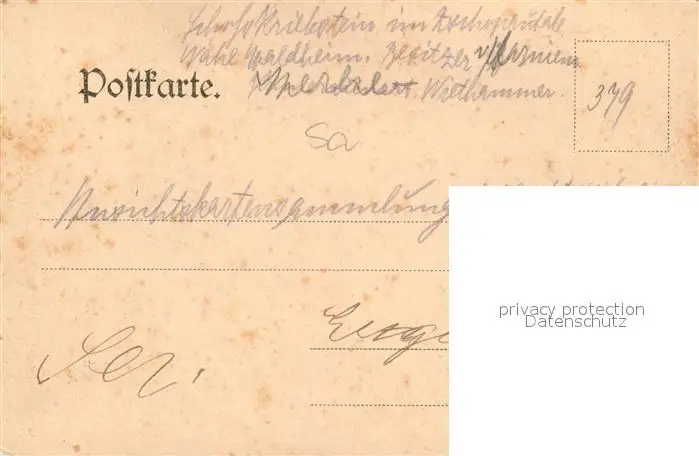 Schloß Kriebstein im Zschopautale
Nähe Waldheim. Besitzer v. Arnim
Postkarte.
Wirthammer.
379
Sa
Ansichtskartensammlung
Ser.
privacy protection
Datenschutz